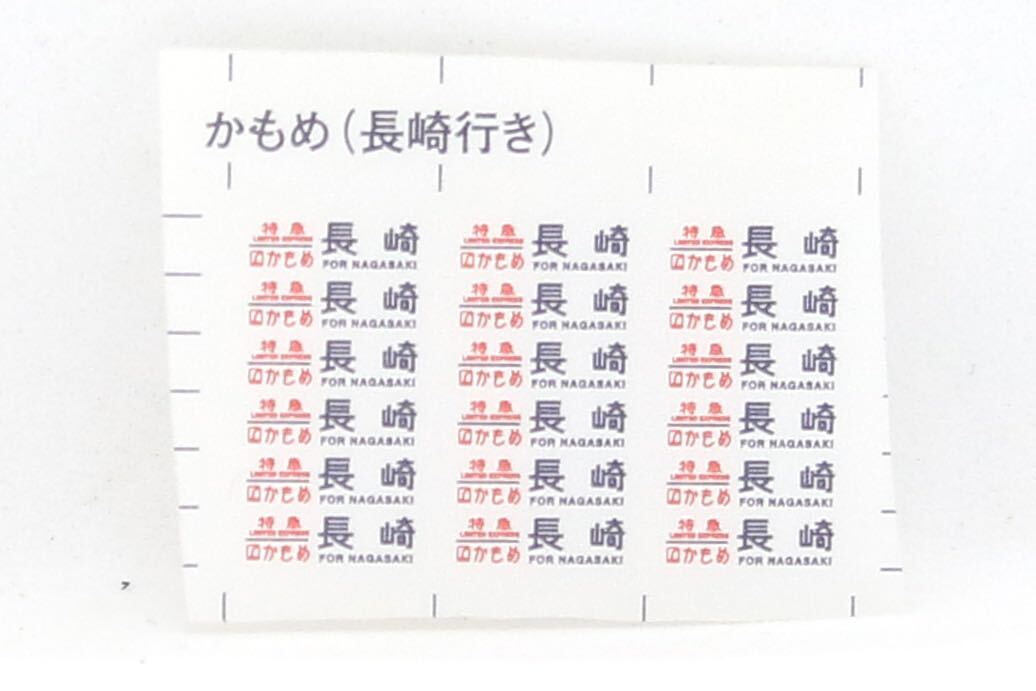 かもめ(長崎行き)
特急 長崎 特急 長崎 特急 長崎
LIMITED EXPRESS LIMITED EXPRESS LIMITED EXPRESS
かもめ FOR NAGASAKI かもめ FOR NAGASAKI かもめ FOR NAGASAKI
特急 長崎 特急 長崎 特急 長崎
LIMITED EXPRESS LIMITED EXPRESS LIMITED EXPRESS
かもめ FOR NAGASAKI かもめ FOR NAGASAKI かもめ FOR NAGASAKI
特急 長崎 特急 長崎 特急 長崎
LIMITED EXPRESS LIMITED EXPRESS LIMITED EXPRESS
かもめ FOR NAGASAKI かもめ FOR NAGASAKI かもめ FOR NAGASAKI
特急 長崎 特急 長崎 特急 長崎
LIMITED EXPRESS LIMITED EXPRESS LIMITED EXPRESS
かもめ FOR NAGASAKI かもめ FOR NAGASAKI かもめ FOR NAGASAKI
特急 長崎 特急 長崎 特急 長崎
LIMITED EXPRESS LIMITED EXPRESS LIMITED EXPRESS
かもめ FOR NAGASAKI かもめ FOR NAGASAKI かもめ FOR NAGASAKI
特急 長崎 特急 長崎 特急 長崎
LIMITED EXPRESS LIMITED EXPRESS LIMITED EXPRESS
かもめ FOR NAGASAKI かもめ FOR NAGASAKI かもめ FOR NAGASAKI